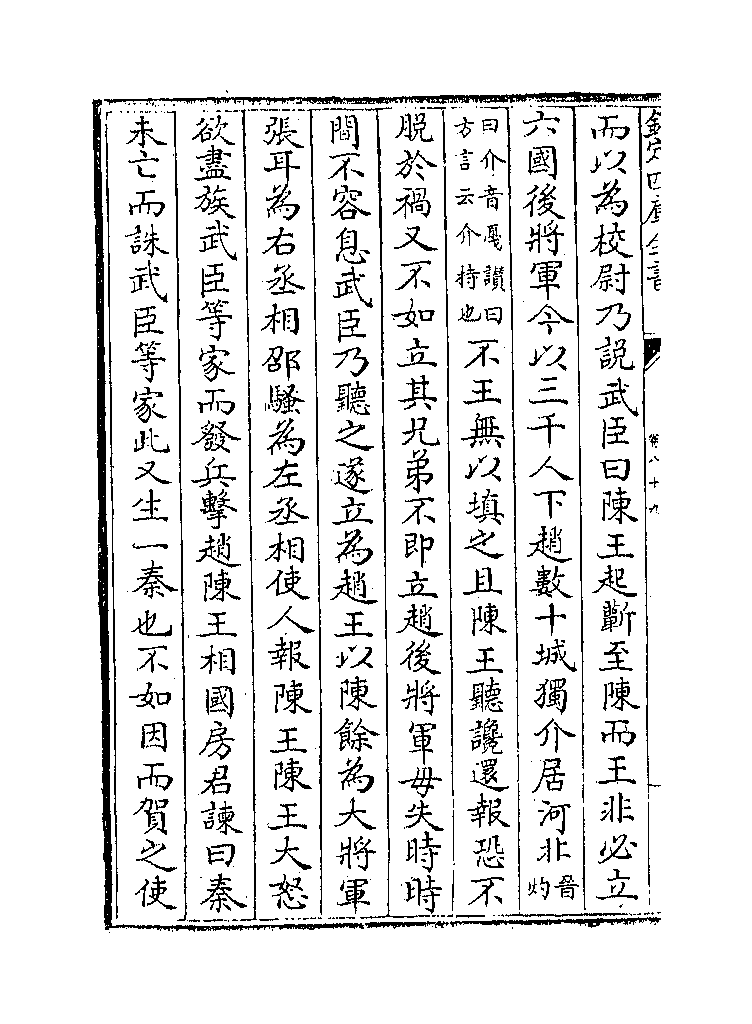 欽定四庫全書
卷八十九
而以為校尉乃説武臣曰陳王起蘄至陳而王非必立
六國後將軍今以三千人下趙數十城獨介居河北晉灼
曰介音戛讃曰方言云介特也不王無以填之且陳王聽讒還報恐不
脱於禍又不如立其兄弟不即立趙後將軍毋失時時
間不容息武臣乃聽之遂立為趙王以陳餘為大將軍
張耳為右丞相邵騷為左丞相使人報陳王陳王大怒
欲盡族武臣等家而發兵擊趙陳王相國房君諫曰秦
未亡而誅武臣等家此又生一秦也不如因而賀之使